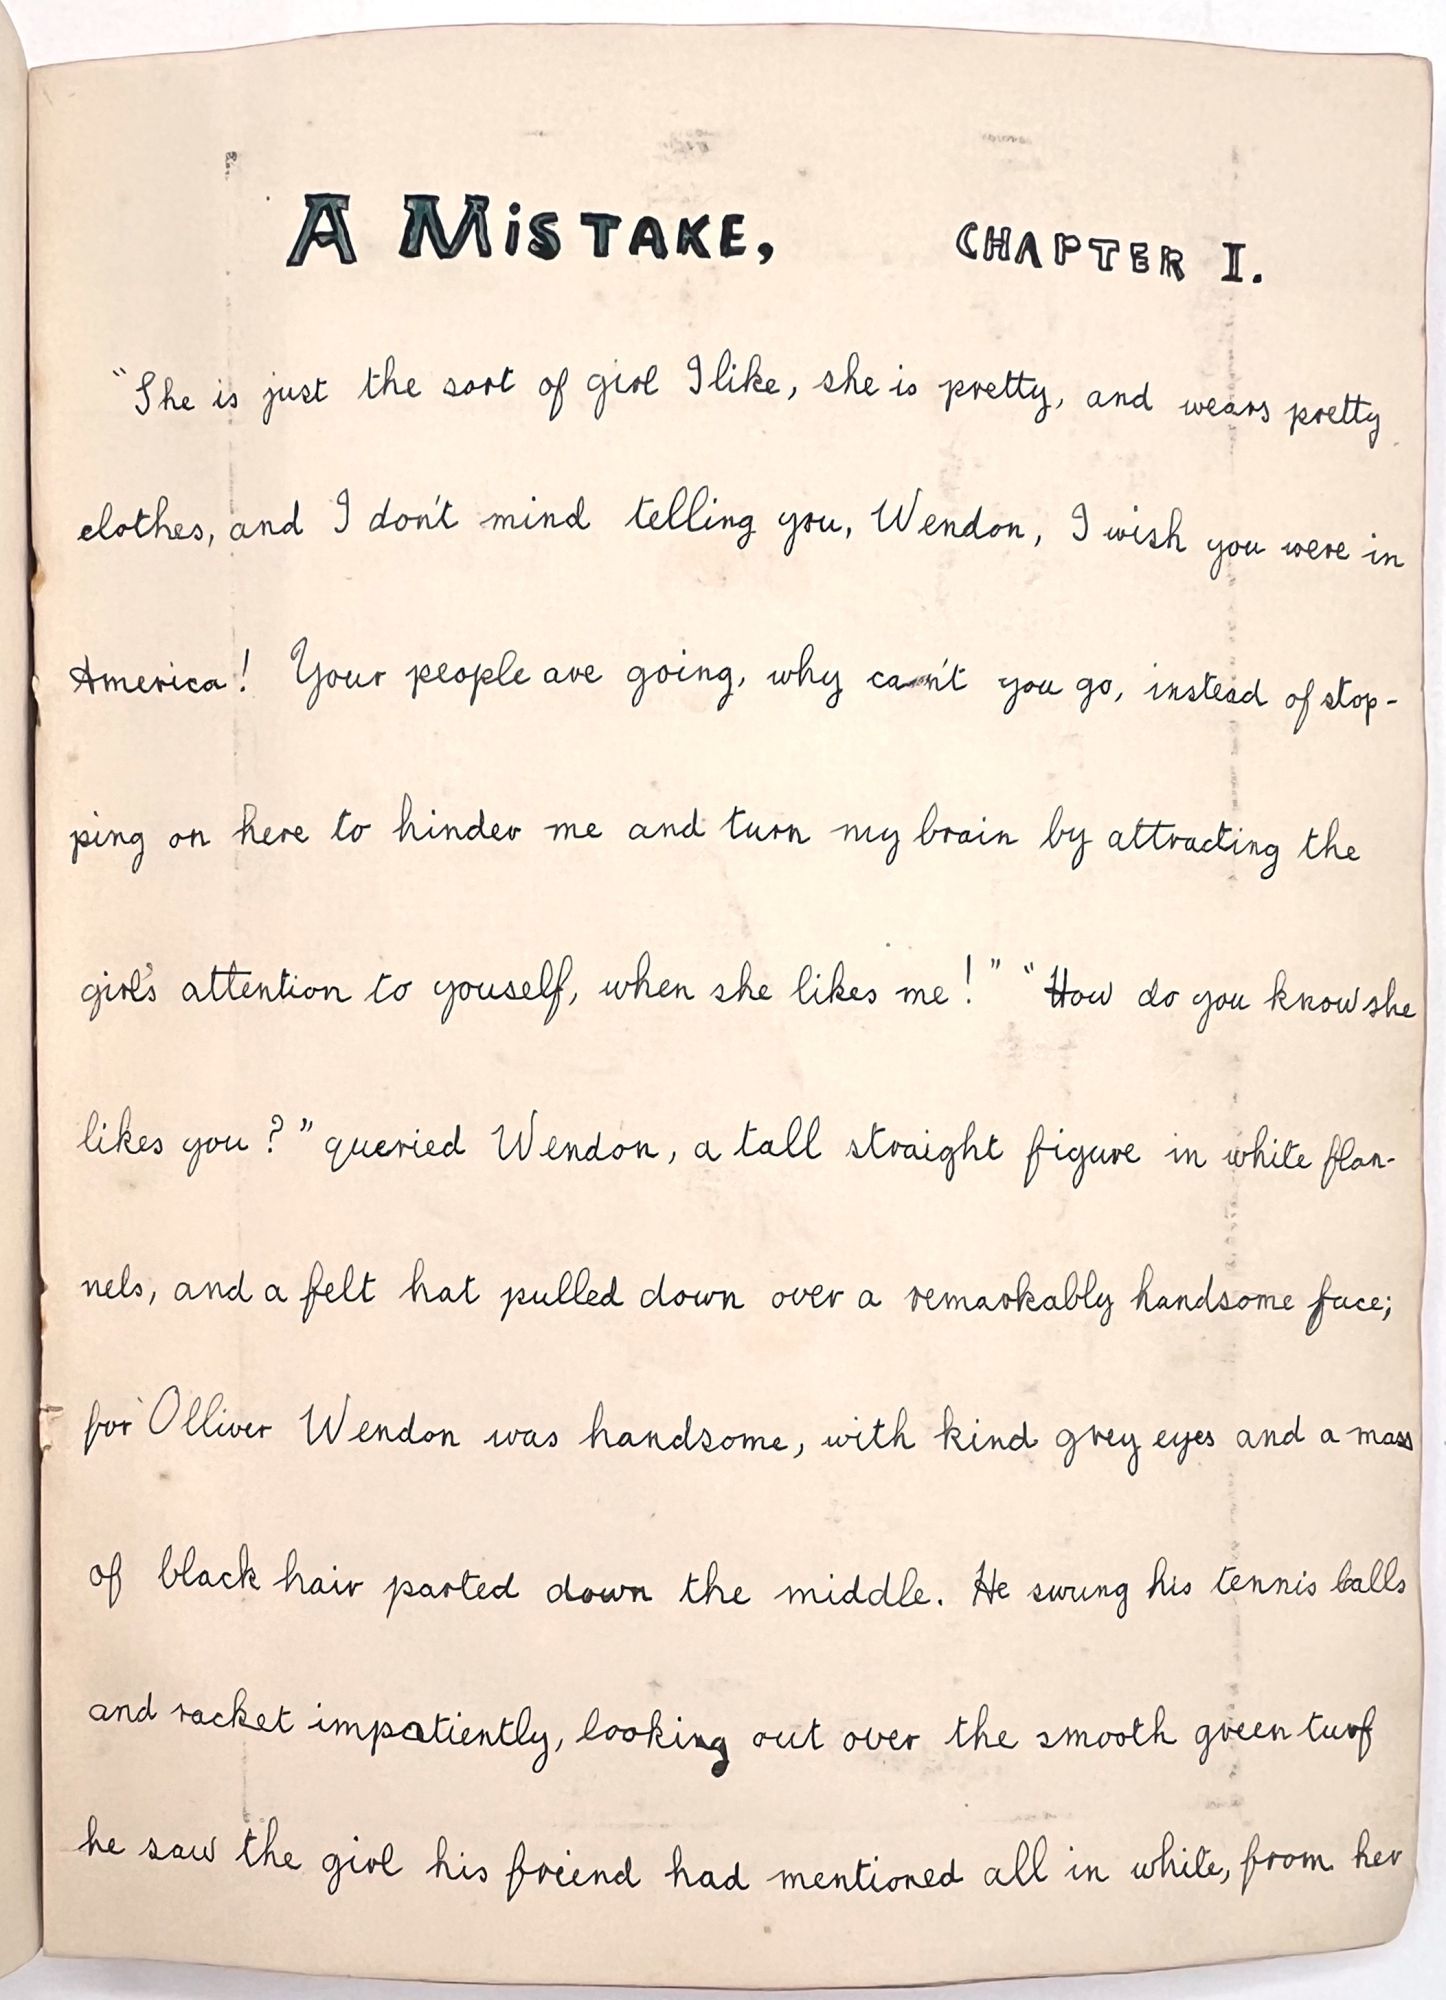 A MiSTAKE, CHAPTER I.
"She is just the sort of girl I like, she is pretty, and wears pretty
clothes, and I don't mind telling you, Wendon, I wish you were in
America! Your people are going, why can't you go, instead of stop-
ping on here to hinder me and turn my brain by attracting the
girl's attention to youself, when she likes me!" "How do you know she
likes you?" queried Wendon, a tall straight figure in white flan-
nels, and a felt hat pulled down over a remarkably handsome face;
for Olliver Wendon was handsome, with kind grey eyes and a mass
of black hair parted down the middle. He swung his tennis balls
and racket impatiently, looking out over the smooth green turf
he saw the girl his friend had mentioned all in white, from her